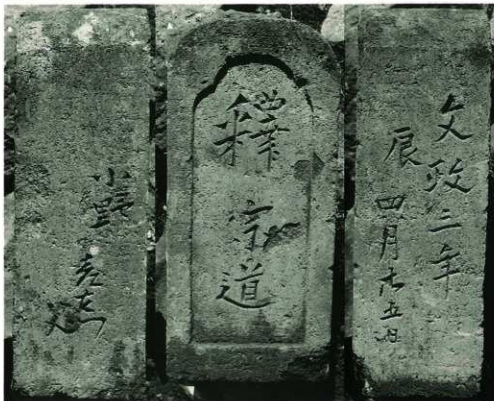 文政三年
辰 四月廿五日
釋宗道
小野
父